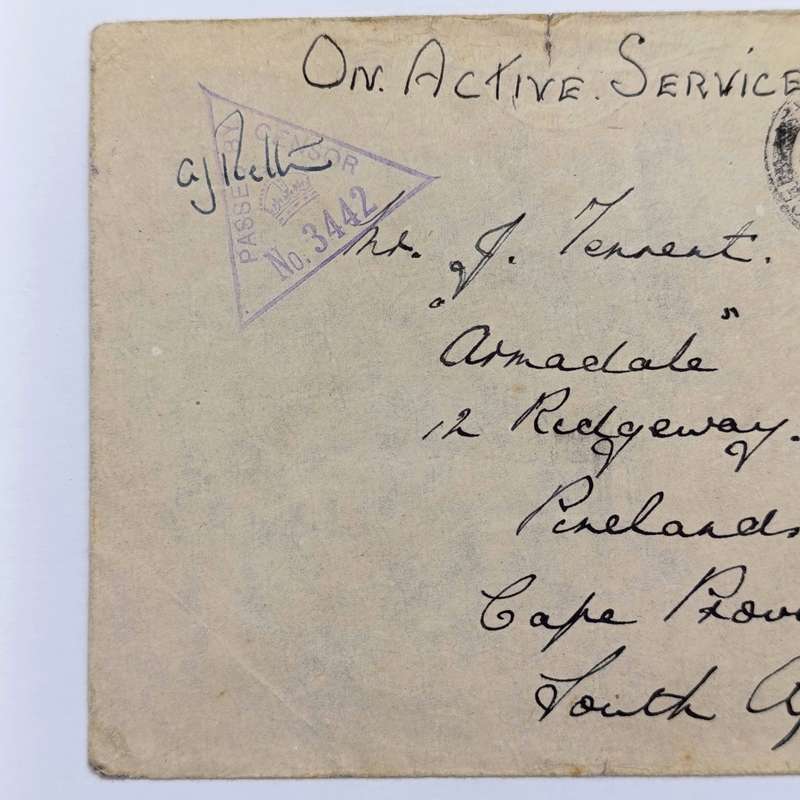 ON. ACTIVE. SERVICE
PASSED BY CENSOR
No. 3442
Mr. J. Tennent.
"Armadale"
12 Ridgeway.
Pinelands
Cape Prov
South A